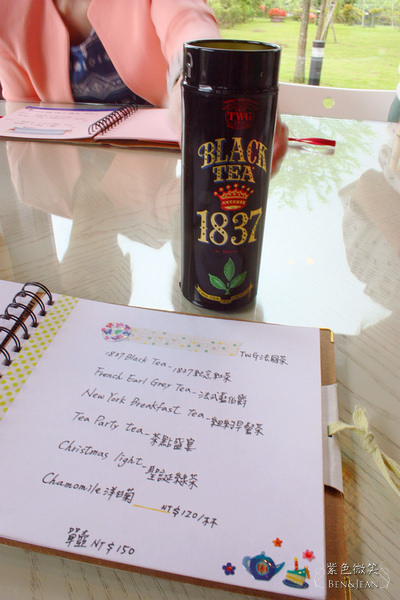 TWG
BLACK
TEA
1837
TWG法國茶
1837 Black Tea-1837紀念紅茶
French Earl Grey Tea-法式藍伯爵
New York Breakfast Tea-紐約早餐茶
Tea Party tea-茶點盛宴
Christmas light-聖誕綠茶
Chamomile 洋甘菊
NT$120/杯
單壺 NT$150
紫色微笑
BEN&JEAN